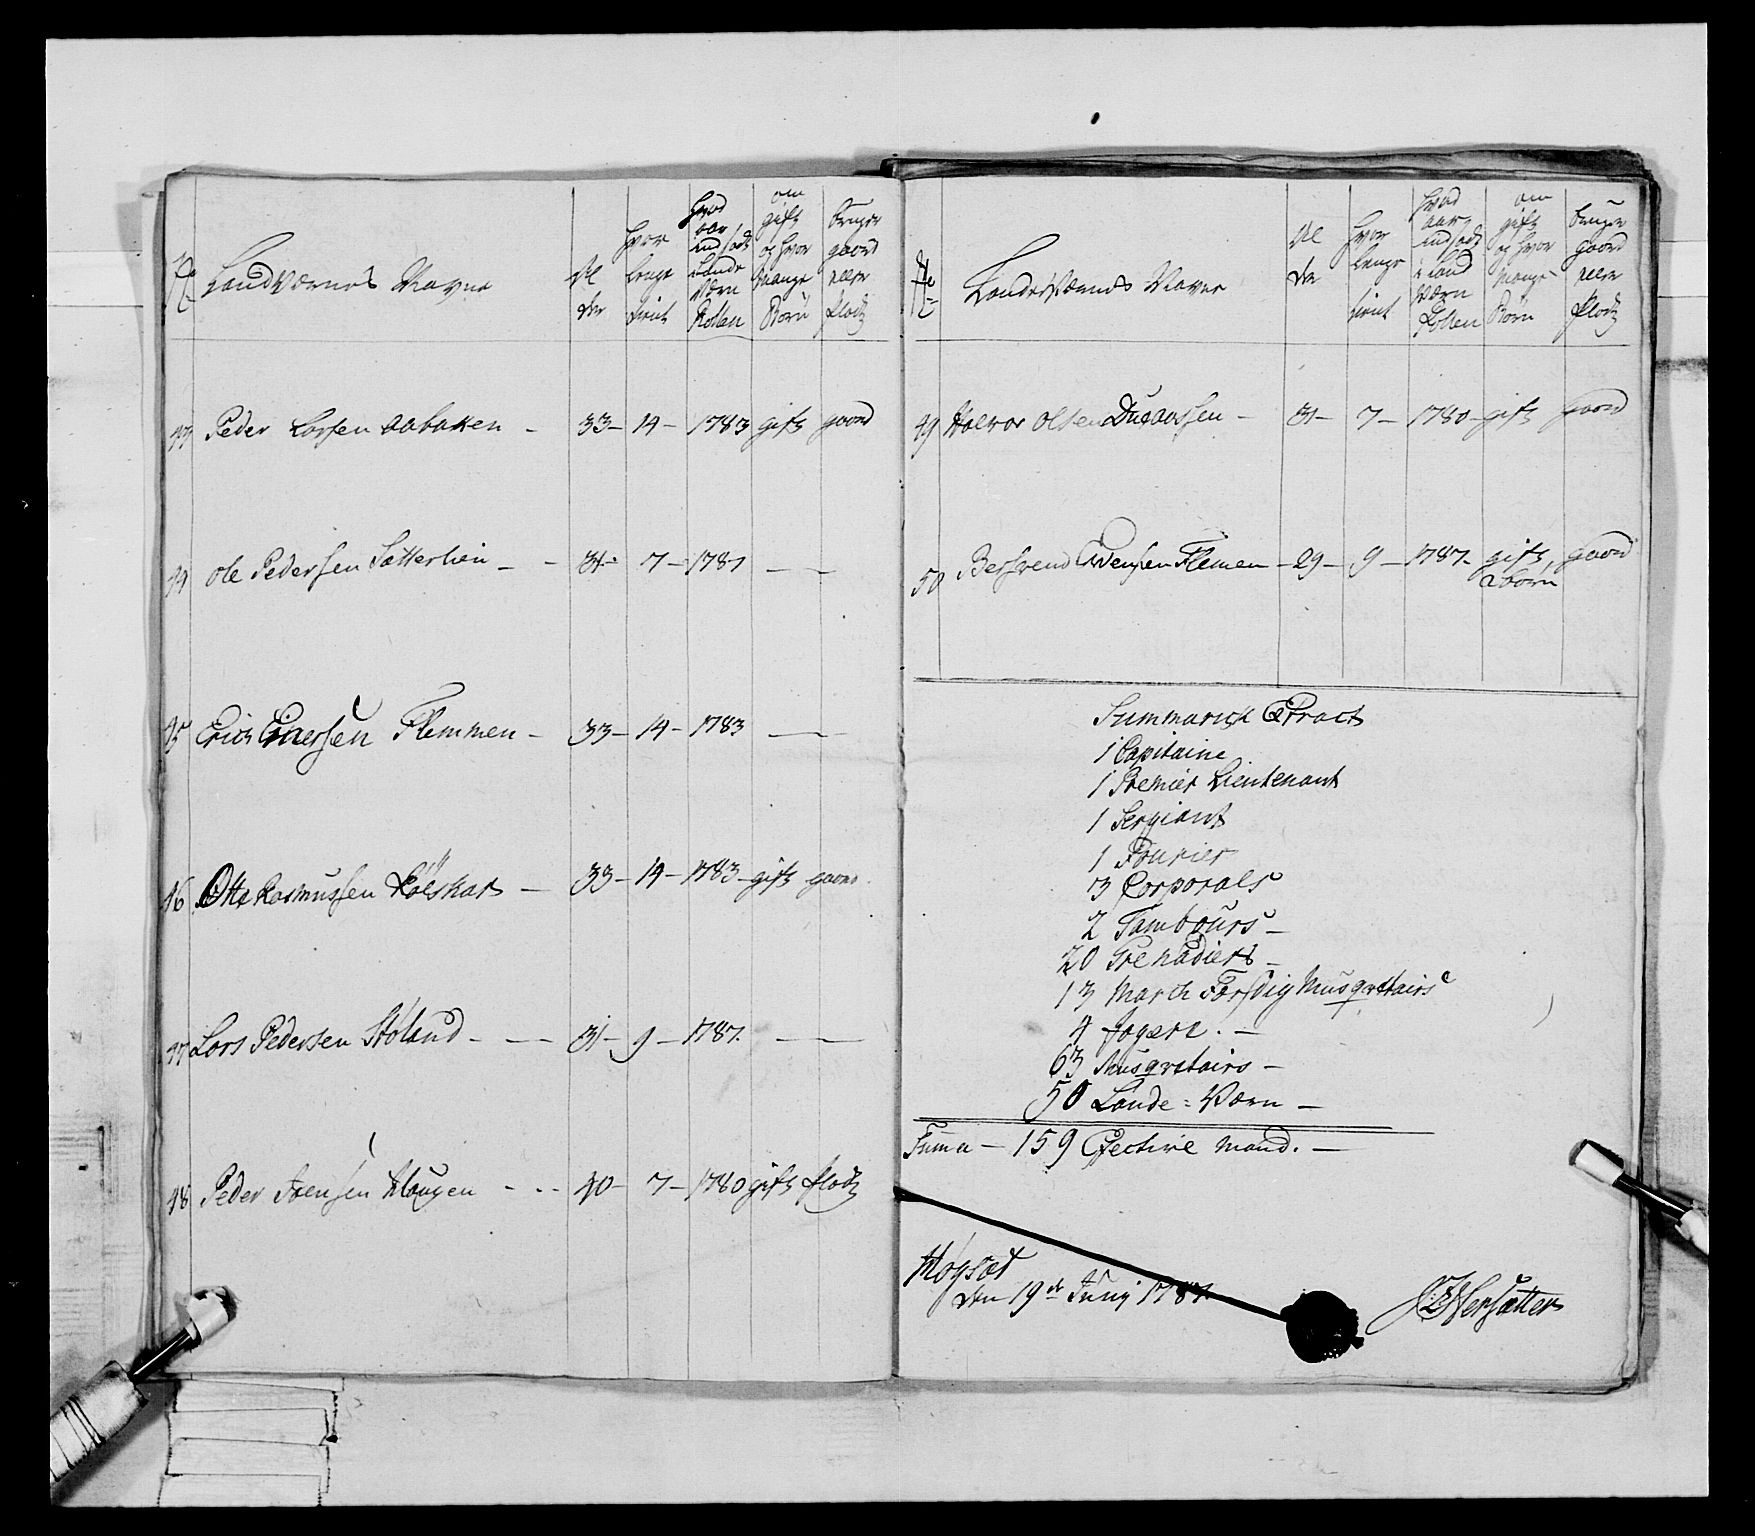 No
LandVærnets Navne
Al
der
hvor
lenge
tient
hvad
aar
indsadt
Lande
Værn
Rollen
om
gift
og hvor
Mange
Børn
bruger
gaard
eller
Plads
43 Peder Larsen Aabakken - 33 - 14 - 1783 gift gaard
44 Ole Pedersen Sætterlien - - 31 - 7 - 1787 - -
45 Erich Einersen Flemmen - 33 - 14 - 1783 - -
46 Otte Rasmussen Kølskar - 33 - 14 - 1783 - gift gaard
47 Lars Pedersen Støland - - - 31 - 9 - 1787. - -
48 Peder Iversen Haugen - - - 40 - 7 - 1780 gift Plads
No
LandeVærnets Navne
Al
der
hvor
lenge
tient
hvad
aar
indsadt
i Land
Værn
Rollen
om
gift
og hvor
Mange
Børn
bruger
gaard
eller
Plads
49 Halvor Olsen - 31 - 7 - 1780 - gift gaard
50 Bersvend Flemen - 29 - 9 - 1787. gift, gaard
2 børn
Summarisk Extract
1 Capitaine
1 Premier Lieutenant
1 Sergiant
1 Fourier
3 Corporals
2 Tambours -
20 Grenadiers -
13 March Færdig Musqvetairs
4 Jægere. -
63 Musqvetairs -
50 Lande = Værn -
Suma - 159 Efective Mand. -
Høysæt
den 19de Junij 1787.